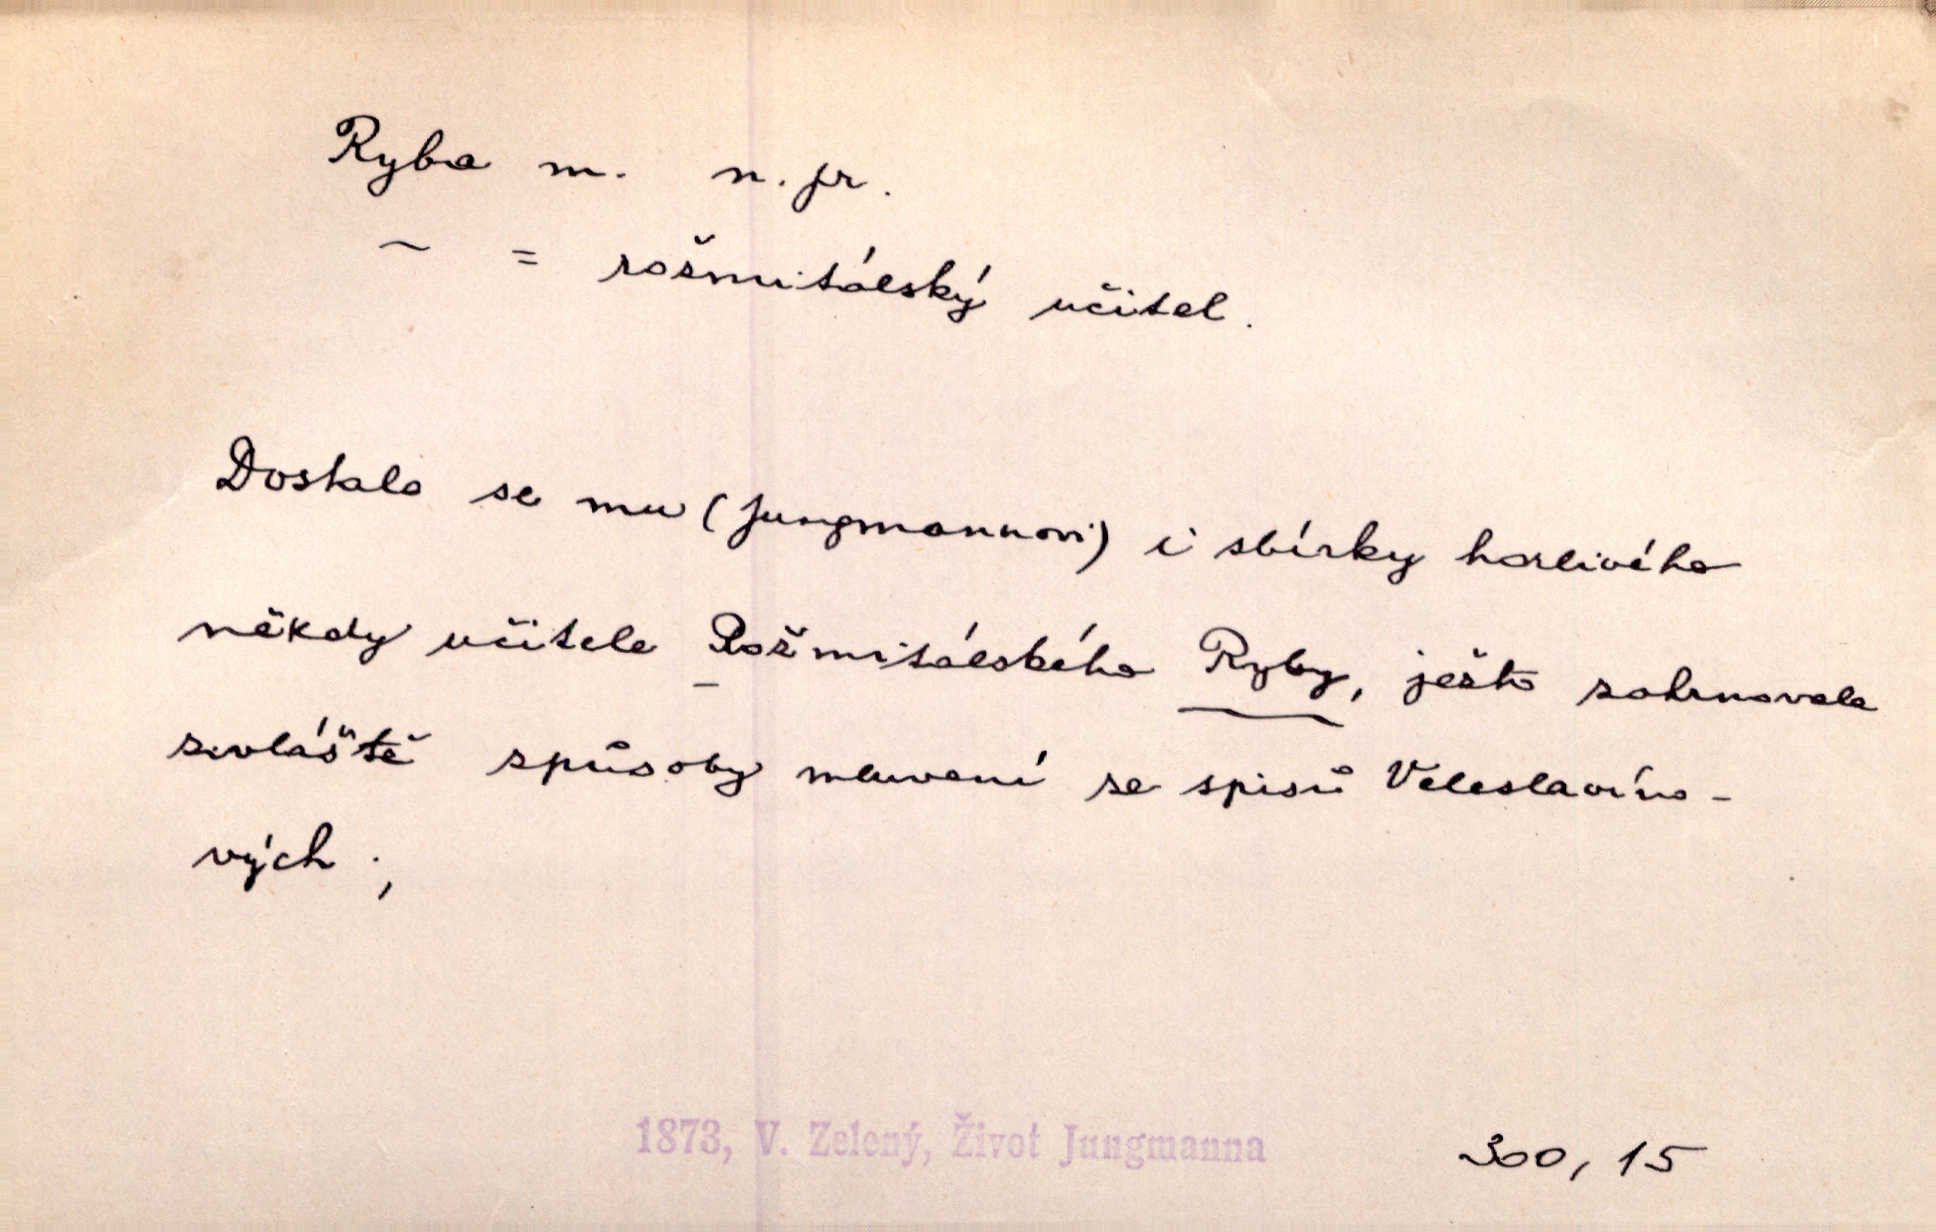 Ryba m. n. pr.
~ = rožmitálský učitel.
Dostalo se mu (Jungmannovi) i sbírky horlivého
někdy učitele Rožmitálského Ryby, ježto zahrnovala
zvláště spůsoby mluvení ze spisů Veleslavíno-
vých ;
1873, V. Zelený, Život Jungmanna
300, 15